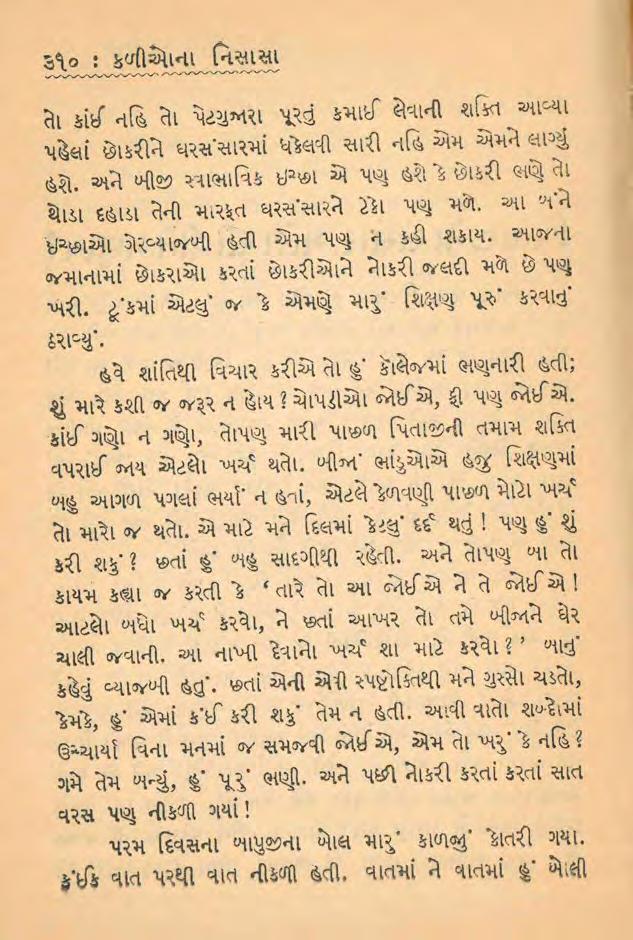 ૩૧૦ : કળીઓના નિસાસા
તો કાંઈ નહિ તો પેટગુજારા પૂરતું કમાઈ લેવાની શક્તિ આવ્યા
પહેલાં છોકરીને ઘરસંસારમાં ધકેલવી સારી નહિ એમ એમને લાગ્યું
હશે. અને બીજી સ્વાભાવિક ઇચ્છા એ પણ હશે કે છોકરી ભણે તો
થોડા દહાડા તેની મારફત ઘરસંસારને ટેકો પણ મળે. આ બંને
ઇચ્છાઓ ગેરવ્યાજબી હતી એમ પણ ન કહી શકાય. આજના
જમાનામાં છોકરાઓ કરતાં છોકરીઓને નોકરી જલદી મળે છે પણ
ખરી. ટૂંકમાં એટલું જ કે એમણે મારું શિક્ષણ પૂરું કરવાનું
ઠરાવ્યું.
હવે શાંતિથી વિચાર કરીએ તો હું કૉલેજમાં ભણનારી હતી;
શું મારે કશી જ જરૂર ન હોય? ચોપડીઓ જોઈએ, ફી પણ જોઈએ.
કાંઈ ગણો ન ગણો, તોપણ મારી પાછળ પિતાજીની તમામ શક્તિ
વપરાઈ જાય એટલો ખર્ચ થતો. બીજાં ભાંડુઓએ હજુ શિક્ષણમાં
બહુ આગળ પગલાં ભર્યાં ન હતાં, એટલે કેળવણી પાછળ મોટો ખર્ચ
તો મારો જ થતો. એ માટે મને દિલમાં કેટલું દર્દ થતું! પણ હું શું
કરી શકું? છતાં હું બહુ સાદગીથી રહેતી. અને તોપણ બા તો
કાયમ કહ્યા જ કરતી કે ‘તારે તો આ જોઈએ ને તે જોઈએ!
આટલો બધો ખર્ચ કરવો, ને છતાં આખર તો તમે બીજાને ઘેર
ચાલી જવાની. આ નાખી દેવાનો ખર્ચ શા માટે કરવો?’ બાનું
કહેવું વ્યાજબી હતું. છતાં એની એવી સ્પષ્ટોક્તિથી મને ગુસ્સો ચડતો,
કેમકે, હું એમાં કંઈ કરી શકું તેમ ન હતી. આવી વાતો શબ્દોમાં
ઉચ્ચાર્યા વિના મનમાં જ સમજવી જોઈએ, એમ તો ખરું કે નહિ?
ગમે તેમ બન્યું, હું પૂરું ભણી. અને પછી નોકરી કરતાં કરતાં સાત
વરસ પણ નીકળી ગયાં!
પરમ દિવસના બાપુજીના બોલ મારું કાળજું કોતરી ગયા.
કંઈક વાત પરથી વાત નીકળી હતી. વાતમાં ને વાતમાં હું બોલી